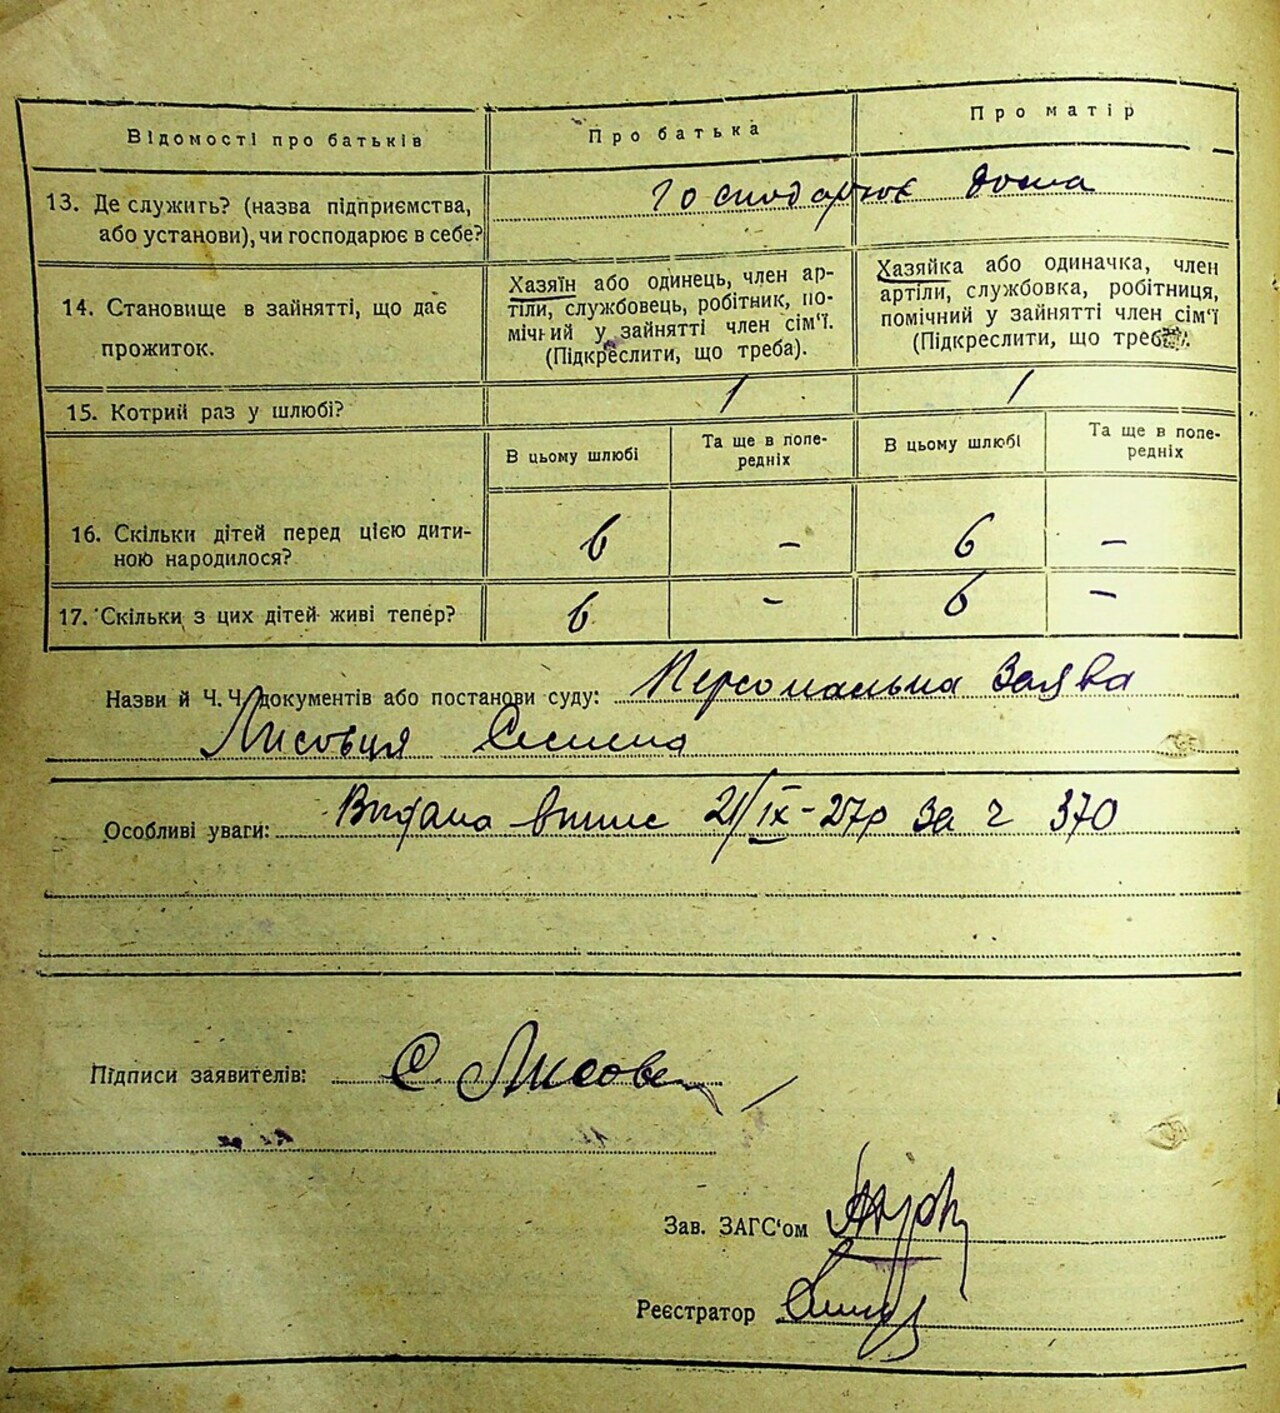 Відомості про батьків
Про батька
Про матір
13. Де служить? (назва підприємства,
або установи), чи господарює в себе?
Господарює дома
14. Становище в зайнятті, що дає
прожиток.
Хазяїн або одинець, член ар-
тіли, службовець, робітник, по-
мічний у зайнятті член сім'ї.
(Підкреслити, що треба).
Хазяйка або одиначка, член
артіли, службовка, робітниця,
помічний у зайнятті член сім'ї
(Підкреслити, що треба).
15. Котрий раз у шлюбі?
1
1
В цьому шлюбі
Та ще в попе-
редніх
В цьому шлюбі
Та ще в попе-
редніх
16. Скільки дітей перед цією дити-
ною народилося?
6
–
6
–
17. Скільки з цих дітей живі тепер?
6
–
6
–
Назви й Ч. Ч. документів або постанови суду: Персональна заява
Лисовця Семена
Особливі уваги: Видана випис 21/IX-27р за ч 370
Підписи заявителів: С. Лисовец
Зав. ЗАГС'ом
Реєстратор